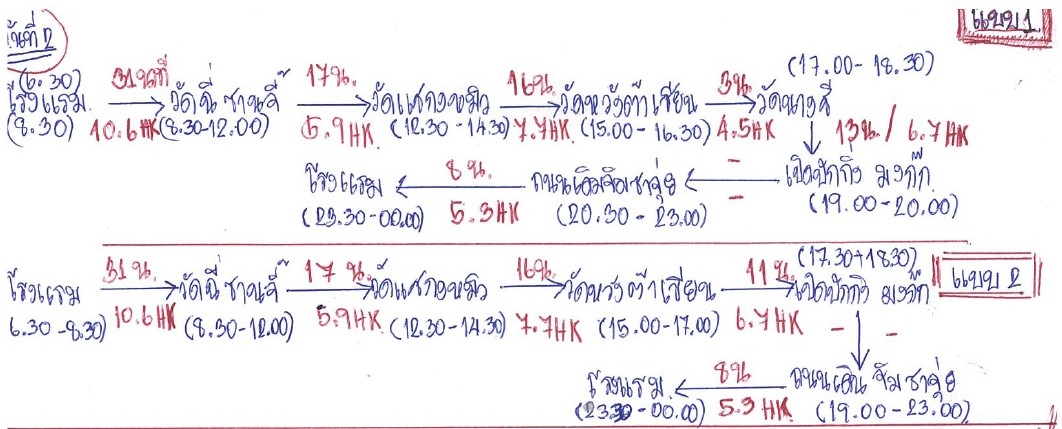 วันที่ 2
แบบ 1
(6.30) 31 นาที 17 น. 16 น. 3 น. (17.00 - 18.30)
โรงแรม → วัดฉี่ซานจี้ → วัดแชกงหมิว → วัดหวังต้าเซียน → วัดนางชี
(8.30) 10.6 HK (8.30-12.00) 5.9 HK (12.30 - 14.30) 7.7 HK (15.00 - 16.30) 4.5 HK ↓ 13 น. / 6.7 HK
โรงแรม ← 8 น. ถนนเดิมจิมซาจุ่ย ← - เป็ดปักกิ่ง มงก๊ก
(23.30 - 00.00) 5.3 HK (20.30 - 23.00) - (19.00 - 20.00)
31 น. 17 น. 16 น. 11 น. (17.30 → 18.30)
แบบ 2
โรงแรม → วัดฉี่ซานจี้ → วัดแชกงหมิว → วัดหวังต้าเซียน → เป็ดปักกิ่ง มงก๊ก
6.30 - 8.30) 10.6 HK (8.30 - 12.00) 5.9 HK (12.30 - 14.30) 7.7 HK (15.00 - 17.00) 6.7 HK - ↓ -
โรงแรม ← 8 น ถนนเดิน จิมซาจุ่ย
(23.30 - 00.00) 5.3 HK (19.00 - 23.00)